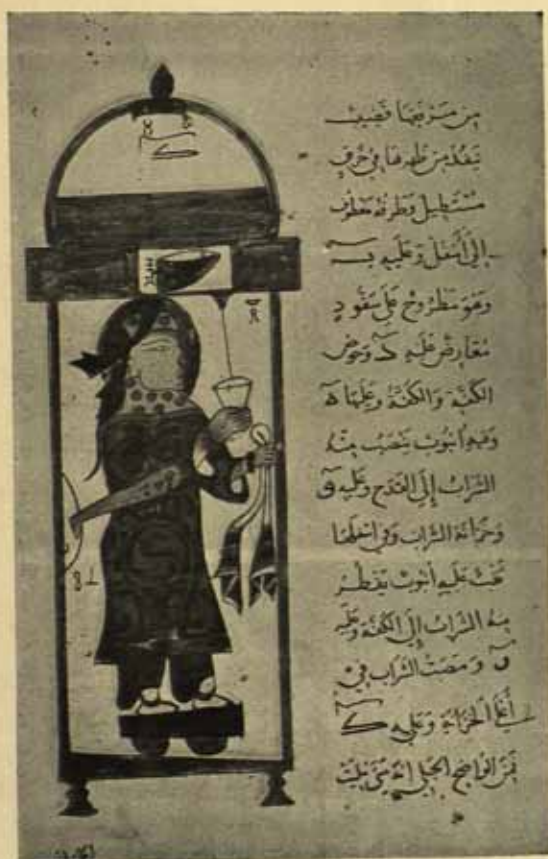 من مرفقها قضيب
ينفذ من ظهرها في خرق
مستطيل وطرفه معطوف
إلى أسفل وعليه
وهو مطروح على سفود
معارض عليه وحوض
الكفة والكفة وعليها ه
وفيه أنبوب ينصب منه
الشراب إلى القدح وعليه ق
وخزانة الشراب وفي أسفلها
ثقب عليه أنبوب يقطر
منه الشراب إلى الكفة وعليه
ن ومصب الشراب في
أعلى الخزانة وعليه ك
فمن الواضح الجلي انه متى